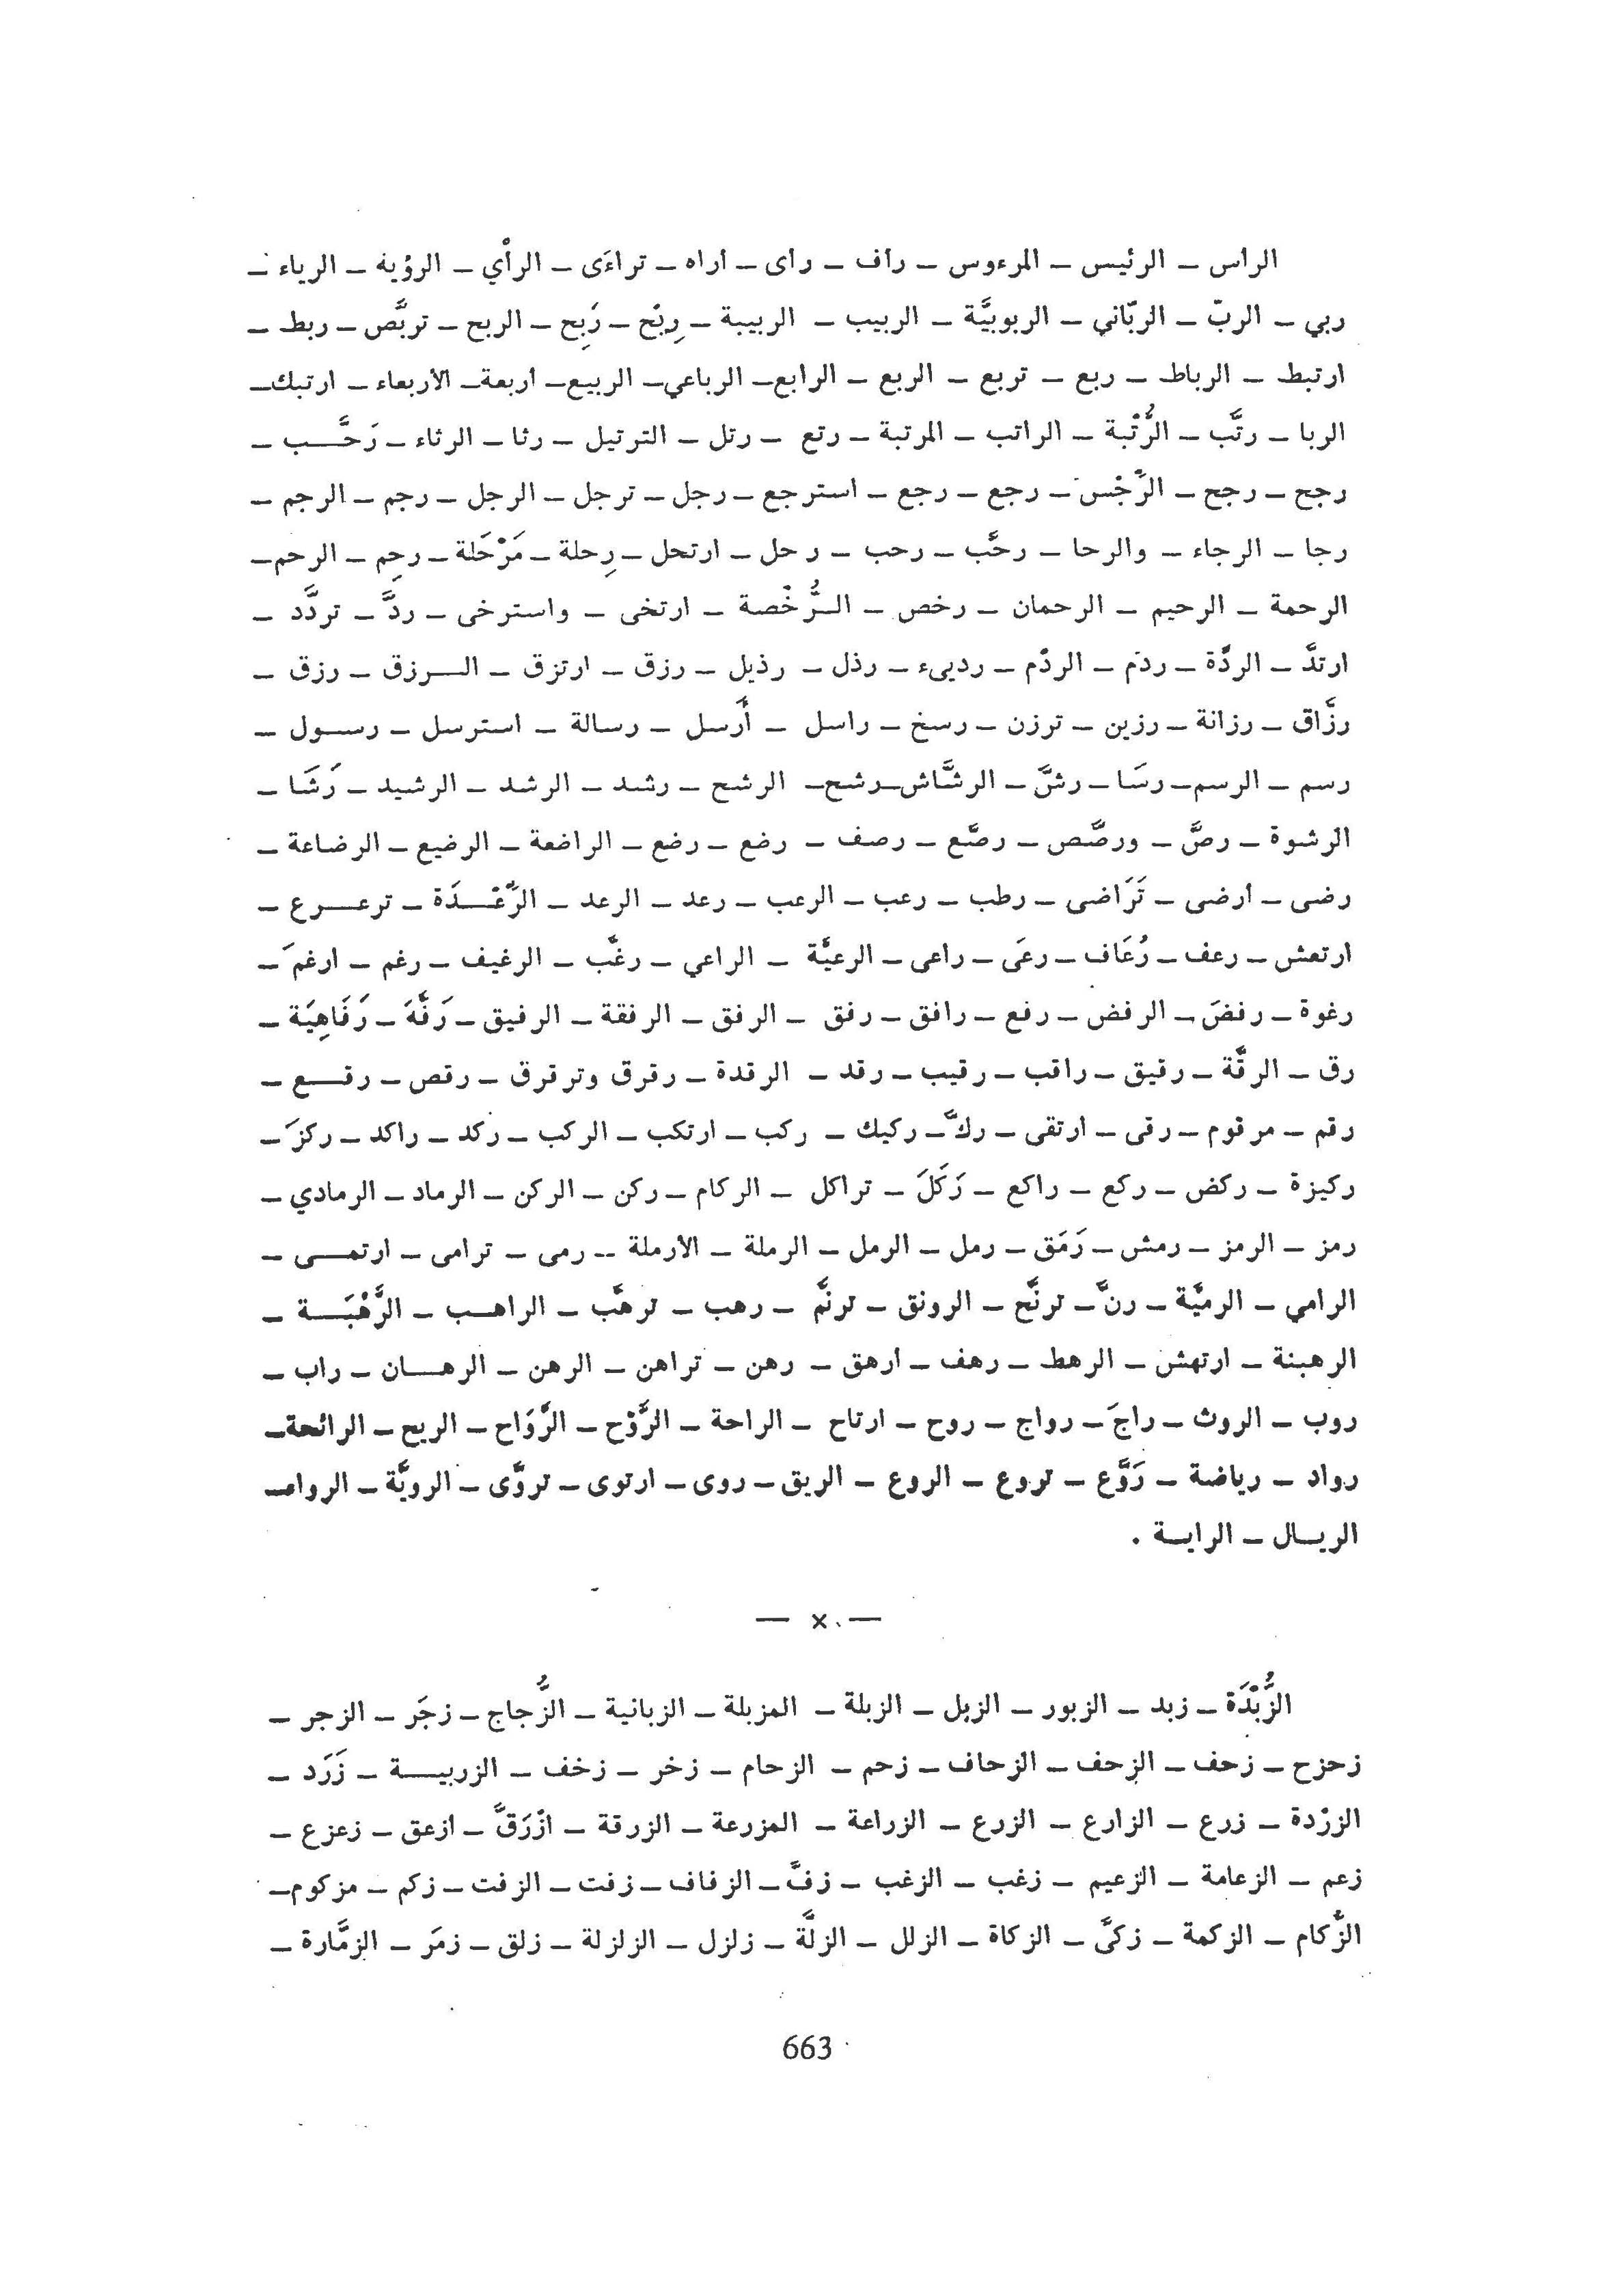 الرأس – الرئيس – المرءوس – رأف – رأى – أراه – تراءَى – الرأْي – الرؤية – الرياء –
ربي – الربّ – الربّاني – الربوبيَّة – الربيب – الربيبة – رِبْح – رَبِح – الربح – تربَّص – ربط –
ارتبط – الرباط – ربع – تربع – الربع – الرابع – الرباعي – الربيع – أربعة – الأربعاء – ارتبك –
الربا – رتَّب – الرُّتْبة – الراتب – المرتبة – رتع – رتل – الترتيل – رثا – الرثاء – رَحَّب –
رجح – رجح – الرِّجْس – رجع – رجع – استرجع – رجل – ترجل – الرجل – رجم – الرجم –
رجا – الرجاء – والرحا – رحَّب – رحب – رحل – ارتحل – رِحلة – مَرْحَلة – رحِم – الرحم –
الرحمة – الرحيم – الرحمان – رخص – الرُّخْصة – ارتخى – واسترخى – ردَّ – تردَّد –
ارتدَّ – الردَّة – ردَم – الردْم – رديء – رذل – رذيل – رزق – ارتزق – الرزق – رزق –
رزَّاق – رزانة – رزين – ترزن – رسخ – راسل – أَرسل – رسالة – استرسل – رسول –
رسم – الرسم – رسَا – رشَّ – الرشَّاش – رشح – الرشح – رشد – الرشد – الرشيد – رَشَا –
الرشوة – رصَّ – ورصَّص – رصَّع – رصف – رضع – رضع – الراضعة – الرضيع – الرضاعة –
رضى – أرضى – تَرَاضى – رطب – رعب – الرعب – رعد – الرعد – الرَّعْدَة – ترعرع –
ارتعش – رعف – رُعَاف – رعَى – راعى – الرعيَّة – الراعي – رغَّب – الرغيف – رغم – أرغمَ –
رغوة – رفضَ – الرفض – رفع – رافق – رفق – الرفق – الرفقة – الرفيق – رَفَّهَ – رَفَاهِيَة –
رق – الرقَّة – رقيق – راقب – رقيب – رقد – الرقدة – رقرق وترقرق – رقص – رقع –
رقم – مرقوم – رقى – ارتقى – ركَّ – ركيك – ركب – ارتكب – الركب – ركد – راكد – ركزَ –
ركيزة – ركض – ركع – راكع – رَكَلَ – تراكل – الركام – ركن – الركن – الرماد – الرمادي –
رمز – الرمز – رمش – رَمَق – رمل – الرمل – الرملة – الأرملة – رمى – ترامى – ارتمى –
الرامي – الرميَّة – رنَّ – ترنَّح – الرونق – ترنَّم – رهب – ترهَّب – الراهب – الرَّهْبَة –
الرهبنة – ارتهش – الرهط – رهف – أرهق – رهن – تراهن – الرهن – الرهان – راب –
روب – الروث – راجَ – رواج – روح – ارتاح – الراحة – الرَّوْح – الرَّوَاح – الريح – الرائحة –
رواد – رياضة – رَوَّع – تروع – الروع – الريق – روى – ارتوى – تروَّى – الرويَّة – الرواء –
الريال – الراية .
— x —
الزُّبْدَة – زبد – الزبور – الزبل – الزبلة – المزبلة – الزبانية – الزُّجاج – زجَر – الزجر –
زحزح – زحف – الزحف – الزحاف – زحم – الزحام – زخر – زخف – الزربية – زَرَد –
الزرْدة – زرع – الزارع – الزرع – الزراعة – المزرعة – الزرقة – ازْرَقَّ – ازعق – زعزع –
زعم – الزعامة – الزعيم – زغب – الزغب – زفَّ – الزفاف – زفت – الزفت – زكم – مزكوم –
الزُّكام – الزكمة – زكىَّ – الزكاة – الزلل – الزلَّة – زلزل – الزلزلة – زلق – زمَر – الزمَّارة –
663